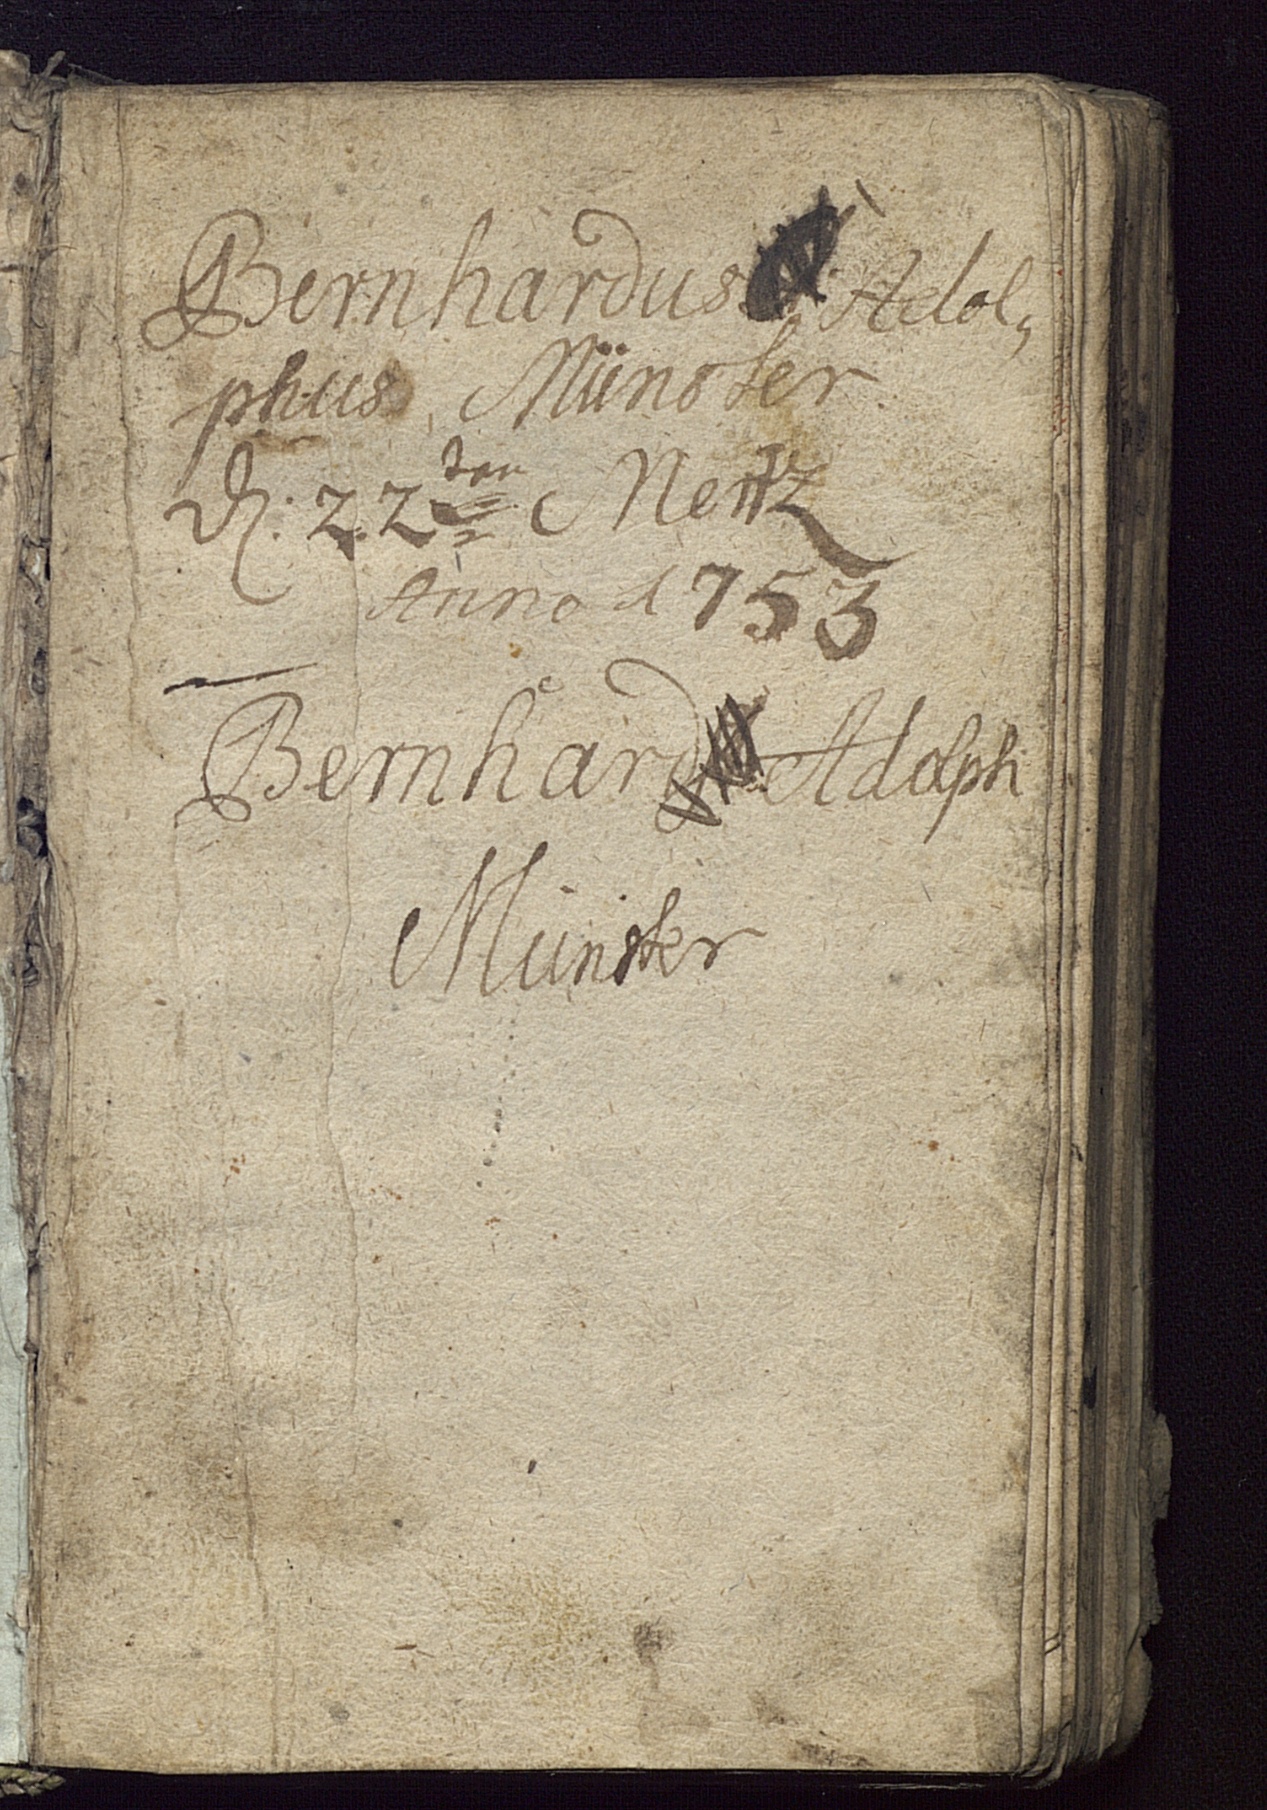 Bernhardus Adol,
phus Münster
d. 22ten Mertz
Anno 1753
Bernhard Adolph
Münster